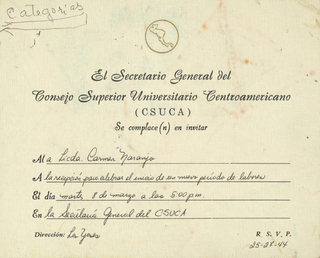 Categorías
El Secretario General del
Consejo Superior Universitario Centroamericano
(CSUCA)
Se complace(n) en invitar
Al a Licda. Carmen Naranjo
A la recepción para celebrar el inicio de su nuevo período de labores
El día martes 8 de marzo a las 5:00 p.m.
En la Secretaría General del CSUCA
Dirección: La Yores
R. S. V. P.
25-27-44